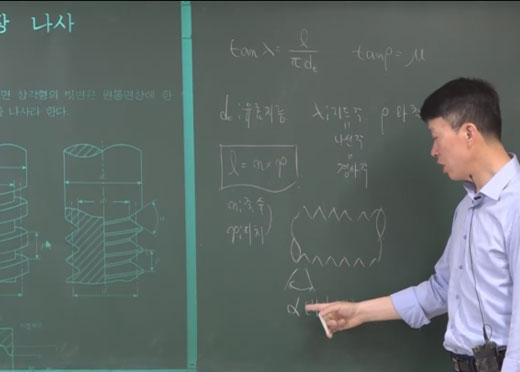 장 나사
면 삼각형의 빗변은 원통면상에 한
나사라 한다.
tan λ = l / πd₂    tan ρ = μ
d₂ ; 유효지름    λ ; 리드각    ρ 마찰
=
나선각
=
경사각
l = n × p
n ; 줄 수
p ; 피치
α